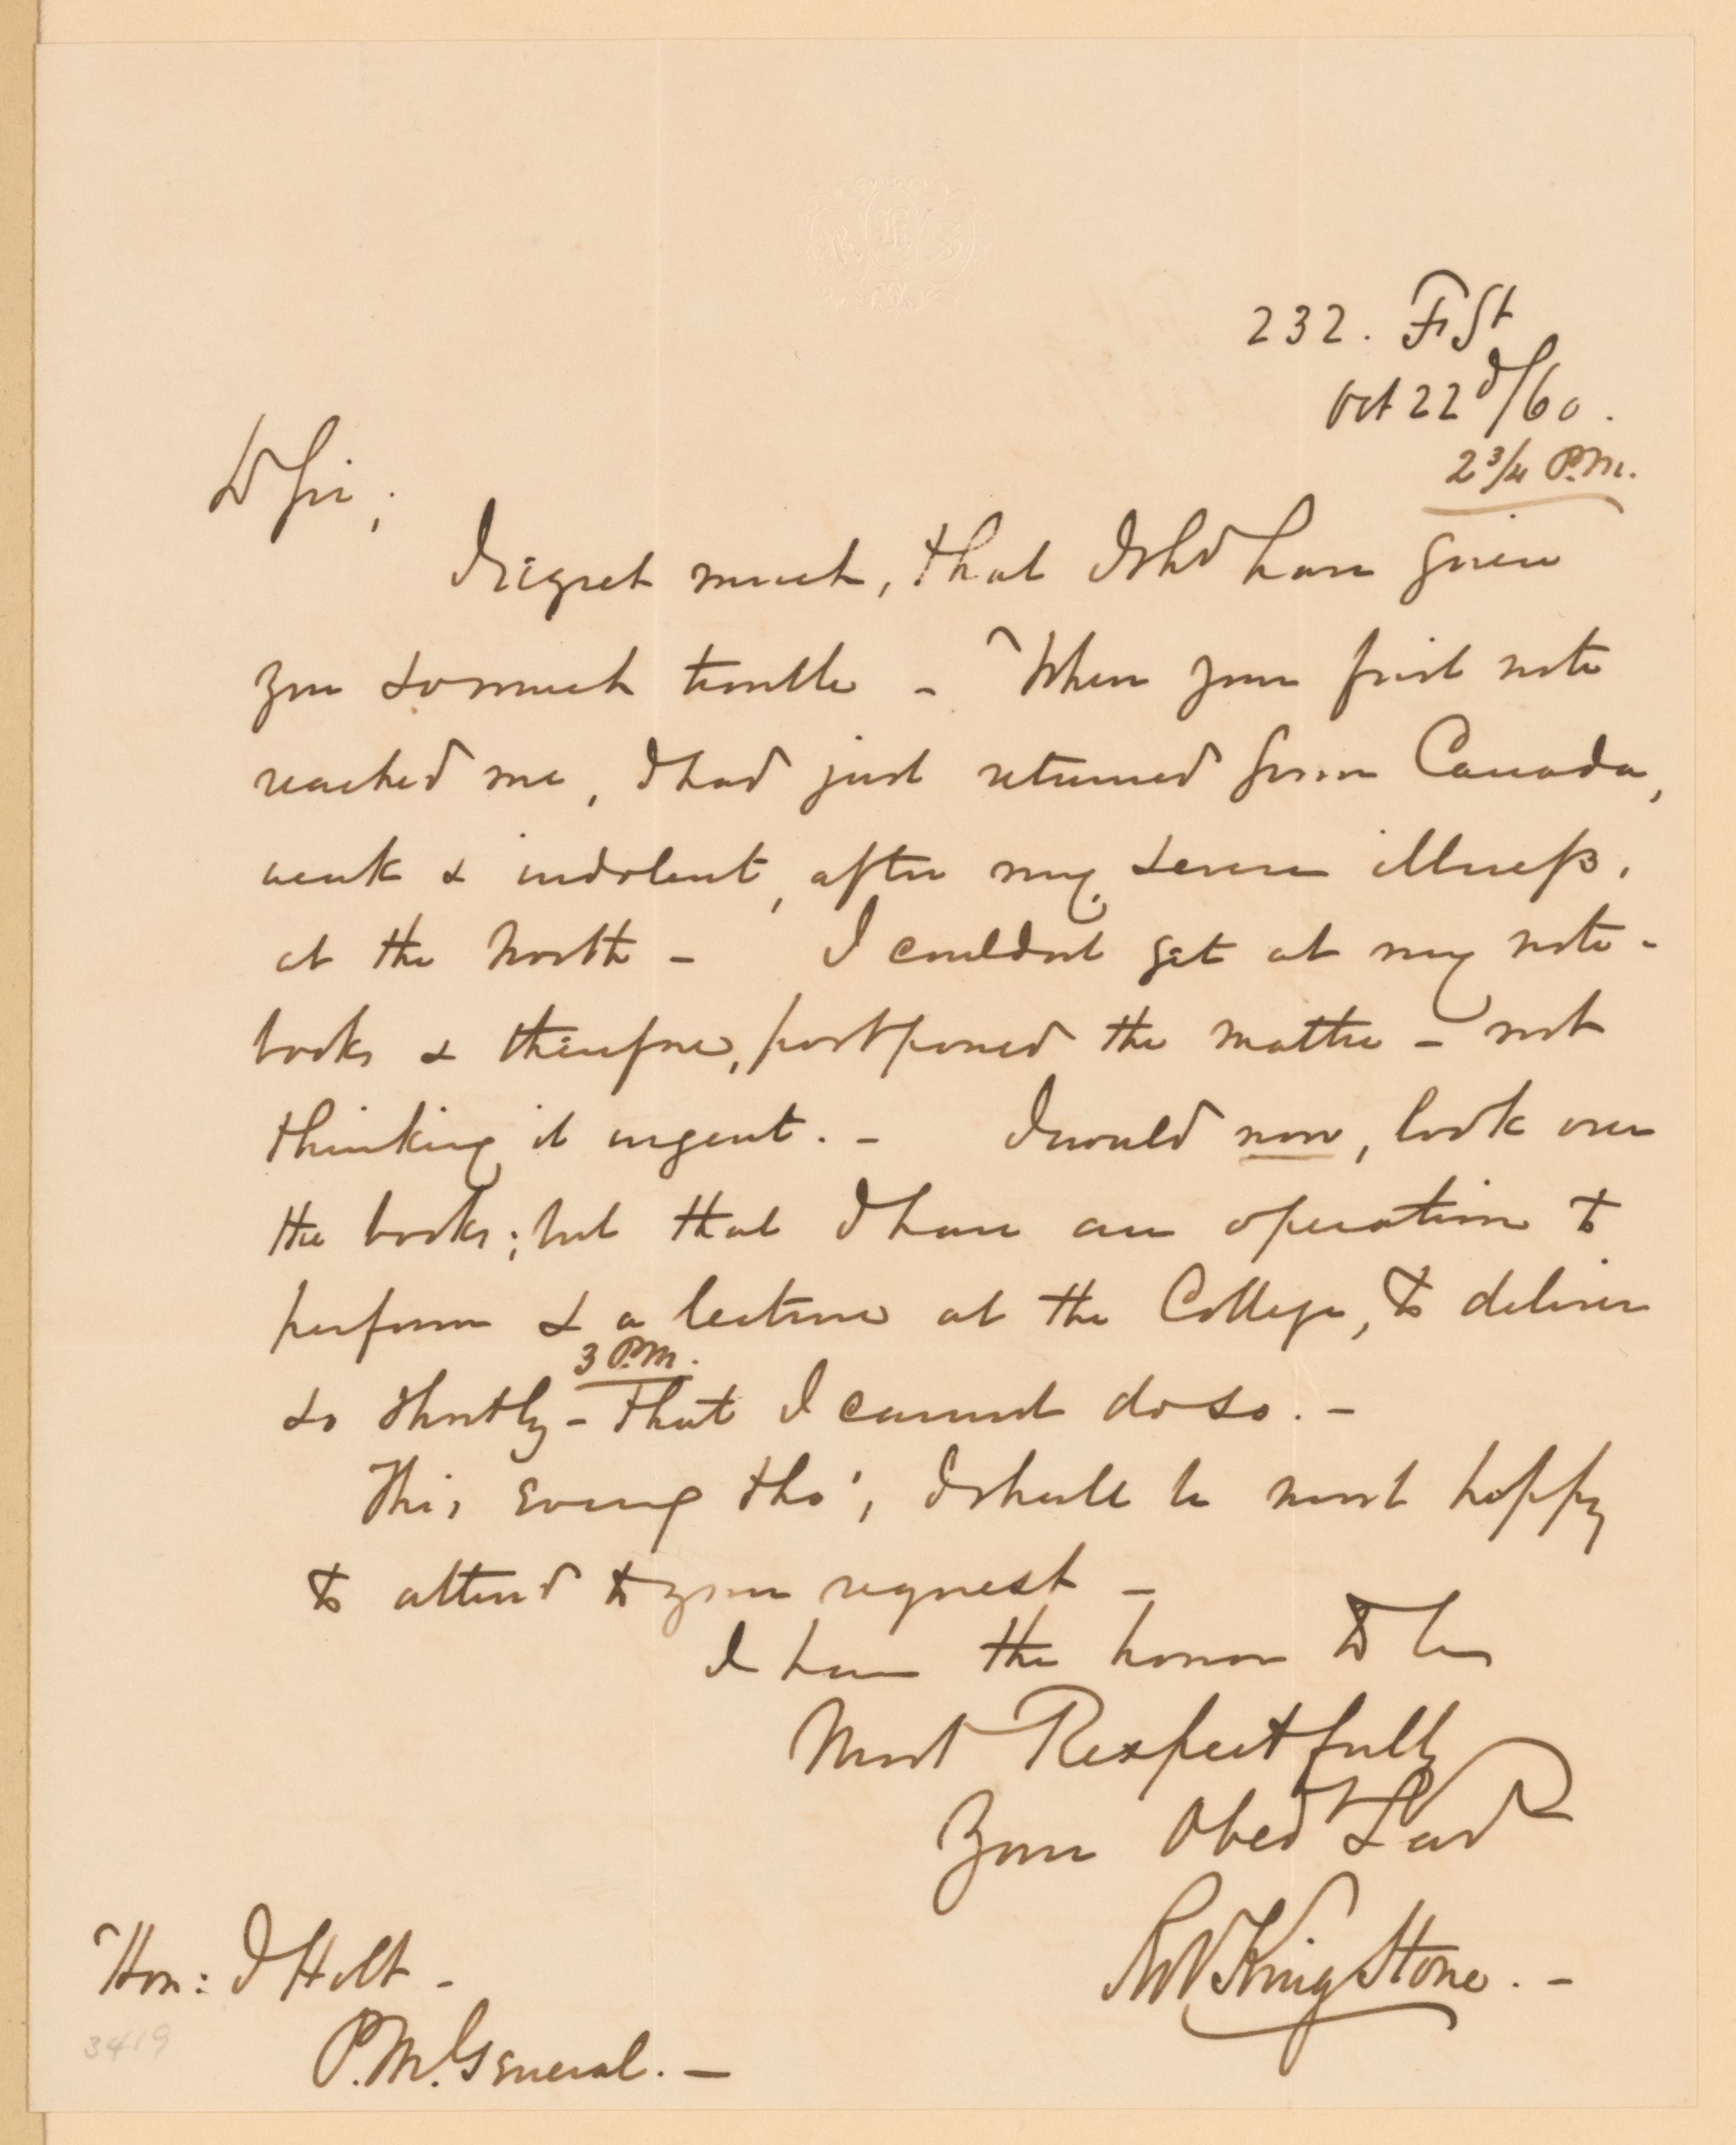 R K S
232. F St
Oct 22d/60.
2 3/4 P.M.
D Sir;
I regret much, that I shd have given
you so much trouble - When your first note
reached me, I had just returned from Canada,
weak & indolent, after my severe illness,
at the North - I couldnt get at my note-
books & therefore, postponed the matter - not
thinking it urgent. - I would now, look over
the books; but that I have an operation to
perform & a lecture at the College, to deliver
3 P.M.
so shortly - that I cannot do so. -
This eveng tho', I shall be most happy
to attend to your request -
I have the honor to be
Most Respectfully
Your Obed Savt
R King Stone. -
Hon: J Holt -
P.M. General. -
3419